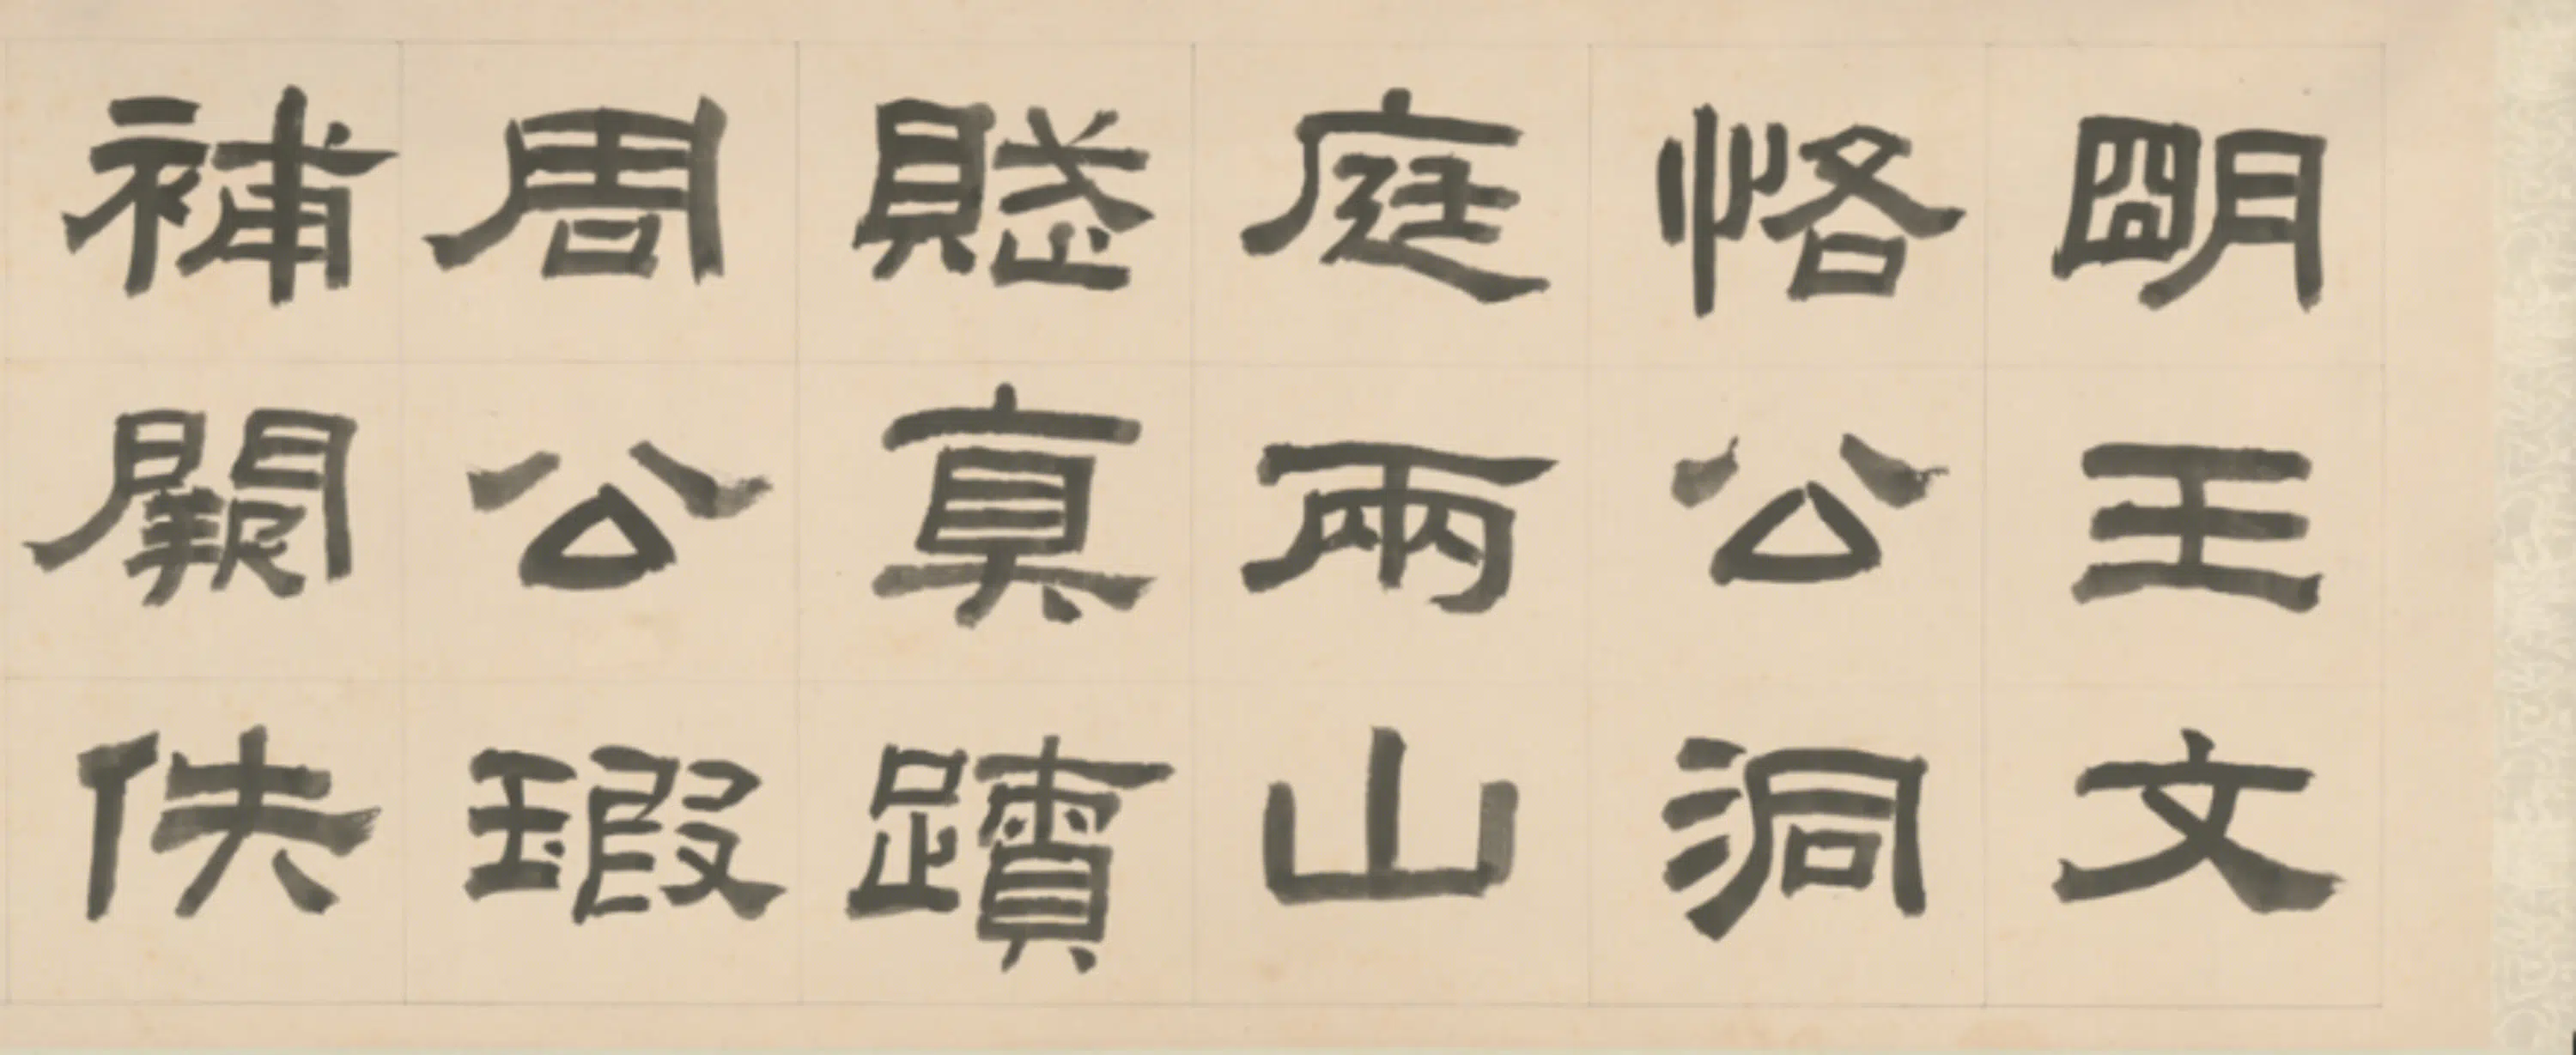 朙王文
恪公洞
庭兩山
賦真蹟
周公瑕
補闕佚